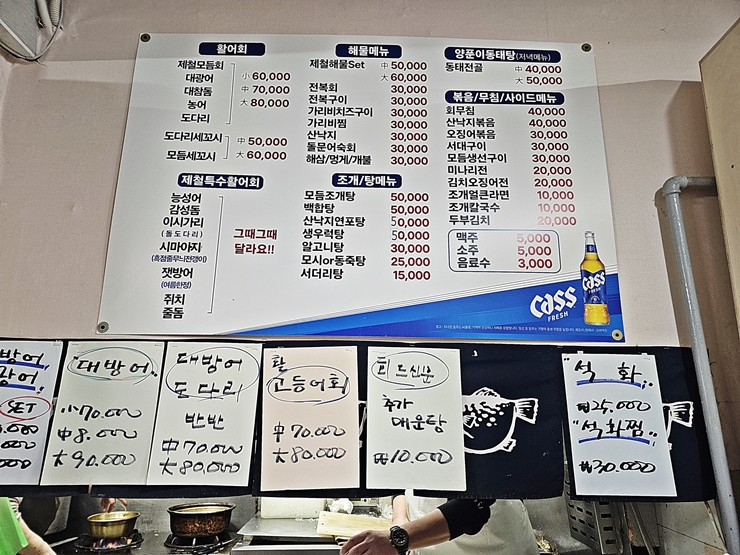 활어회
제철모듬회
대광어 小 60,000
대참돔 中 70,000
농어 大 80,000
도다리
도다리세꼬시 中 50,000
모듬세꼬시 大 60,000
제철특수활어회
능성어
감성돔
이시가리
(돌도다리)
시마아지
(흑점줄무늬전갱이)
잿방어
(여름한정)
쥐치
줄돔
그때그때
달라요!!
해물메뉴
제철해물Set 中 50,000
大 60,000
전복회 30,000
전복구이 30,000
가리비치즈구이 30,000
가리비찜 30,000
산낙지 30,000
돌문어숙회 30,000
해삼/멍게/개불 30,000
조개/탕메뉴
모듬조개탕 50,000
백합탕 50,000
산낙지연포탕 50,000
생우럭탕 50,000
알고니탕 30,000
모시or동죽탕 25,000
서더리탕 15,000
양푼이동태탕(저녁메뉴)
동태전골 中 40,000
大 50,000
볶음/무침/사이드메뉴
회무침 40,000
산낙지볶음 40,000
오징어볶음 30,000
서대구이 30,000
모듬생선구이 30,000
미나리전 20,000
김치오징어전 20,000
조개얼큰라면 10,000
조개칼국수 10,000
두부김치 20,000
맥주 5,000
소주 5,000
음료수 3,000
Cass
FRESH
방어,
광어,
SET
"대방어"
小70.000
中8.000
大90.000
대방어
도다리
반반
中70.000
大80.000
활
고등어회
中70.000
大80.000
회드신분
추가
매운탕
₩10.000
"석화"
₩25.000
"석화찜"
₩30.000